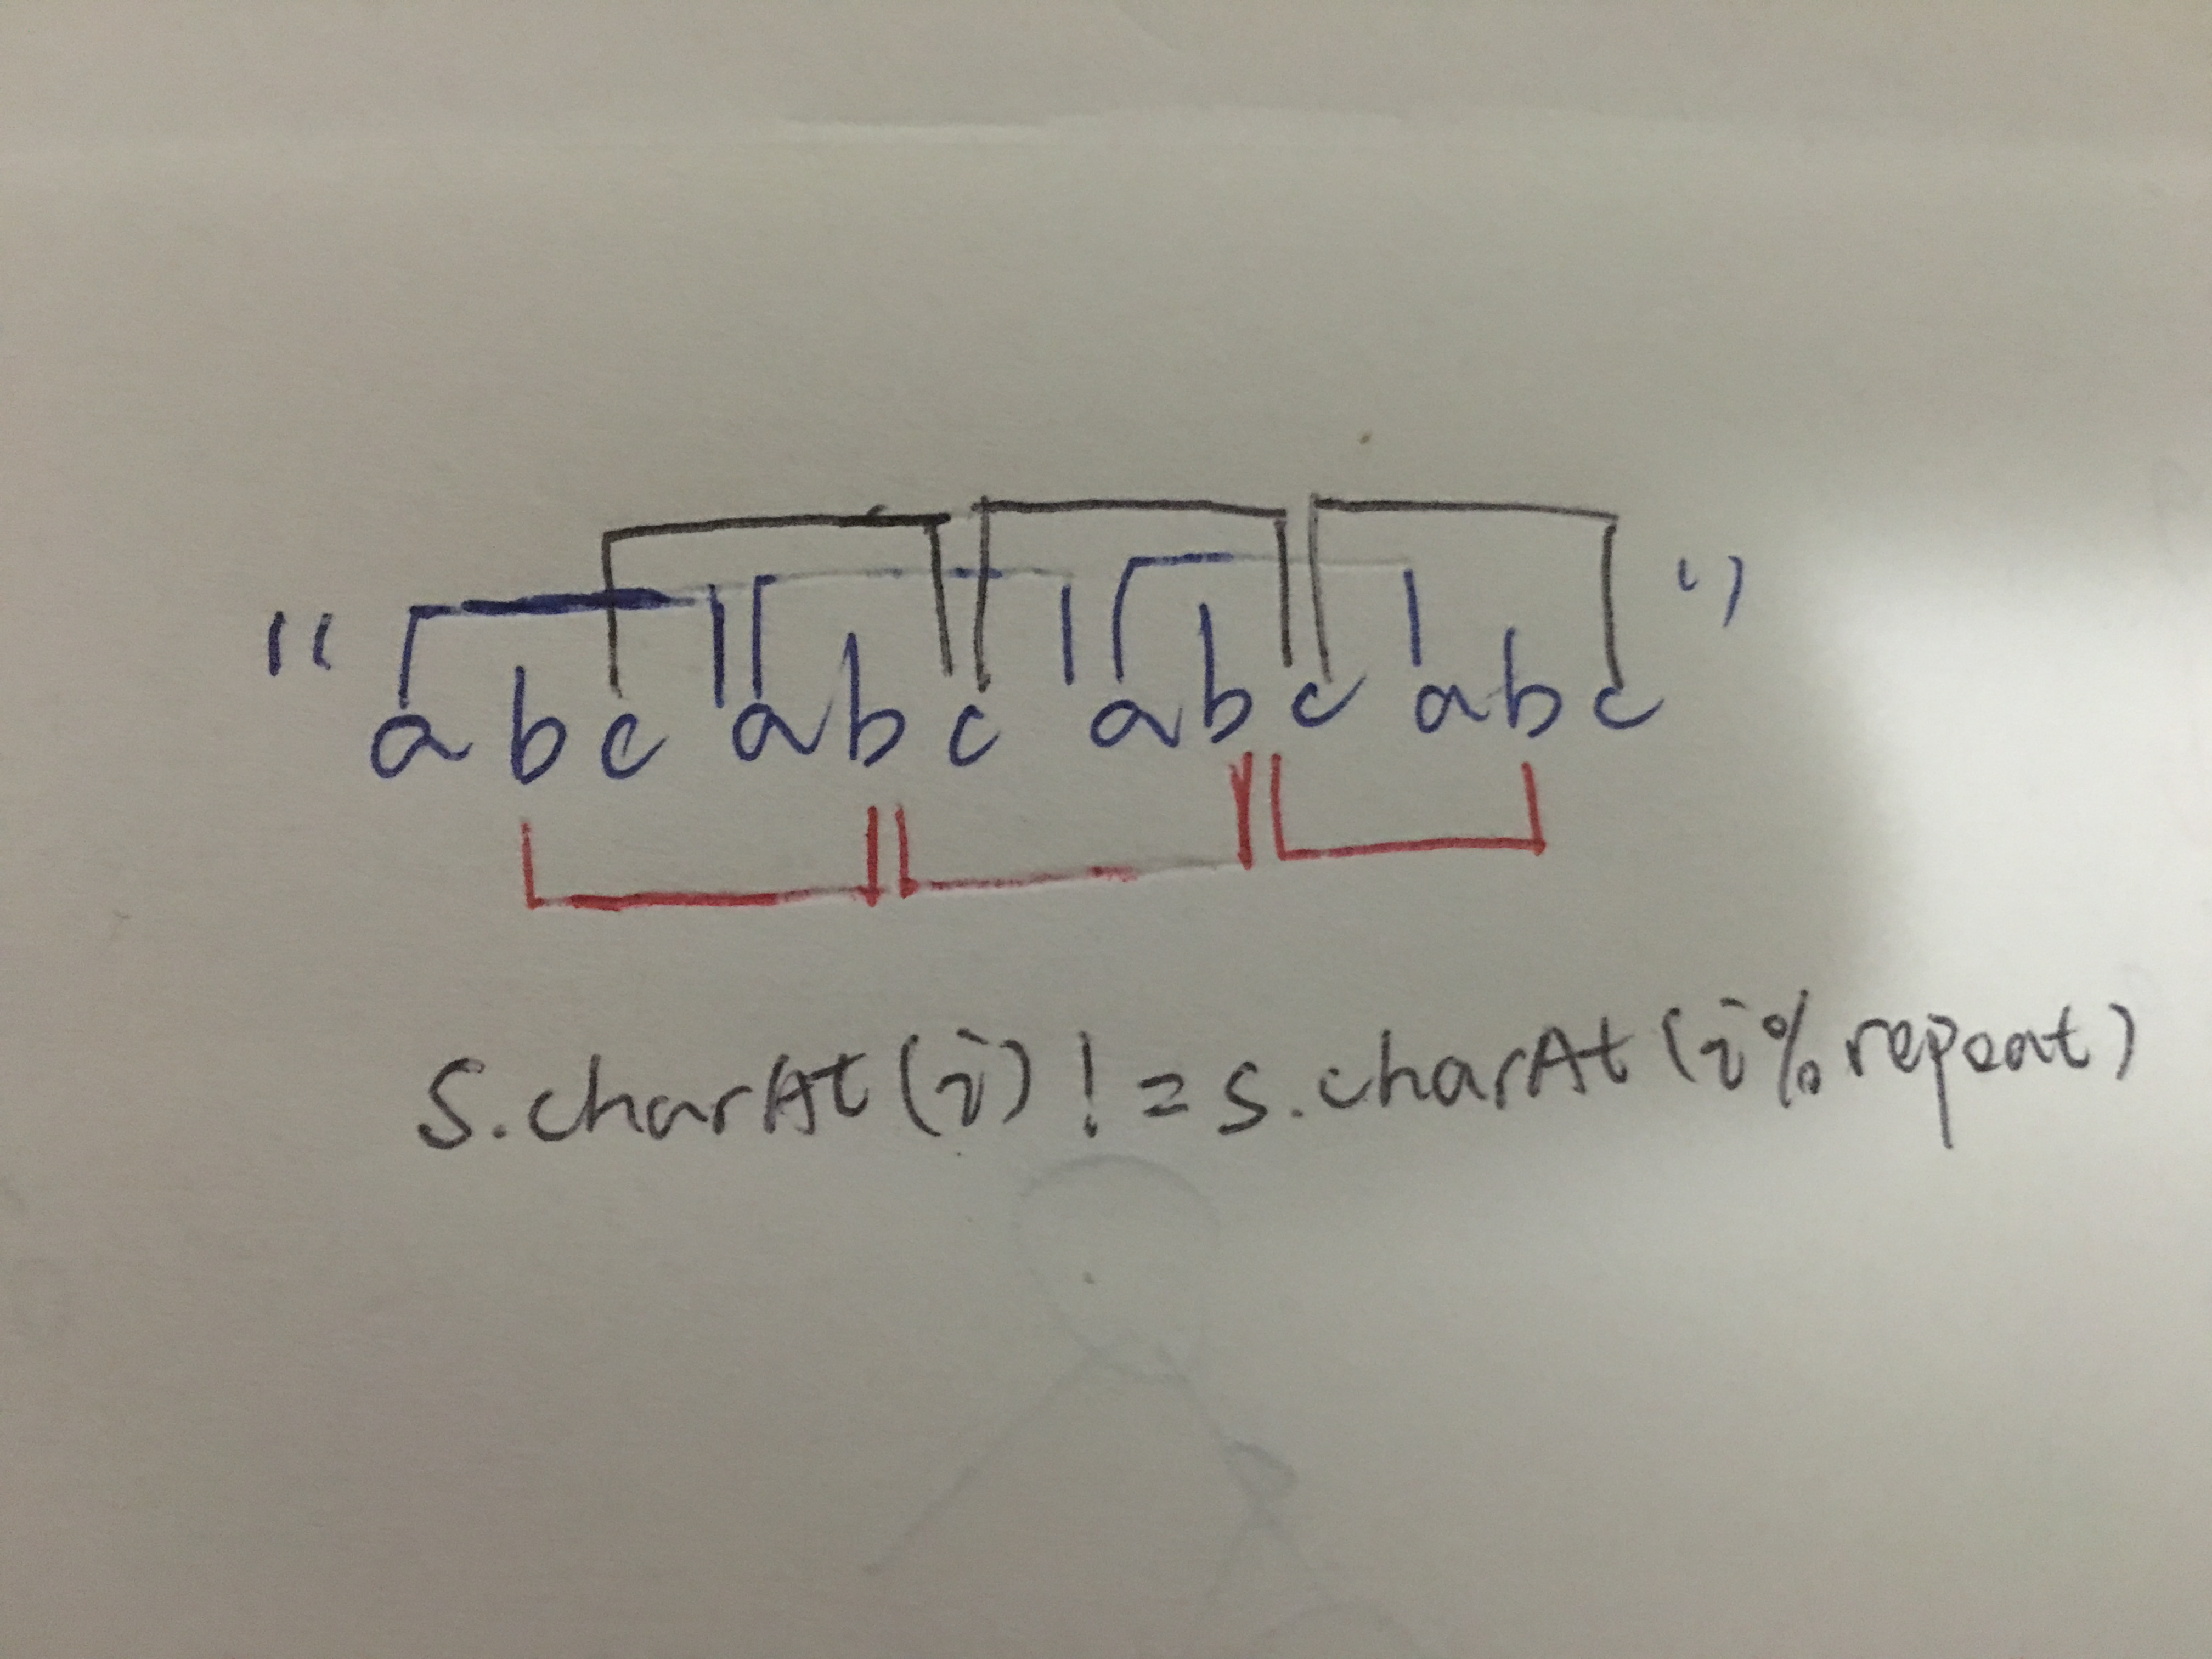 "abcabcabcabc"
s.charAt(i) != s.charAt(i%repeat)